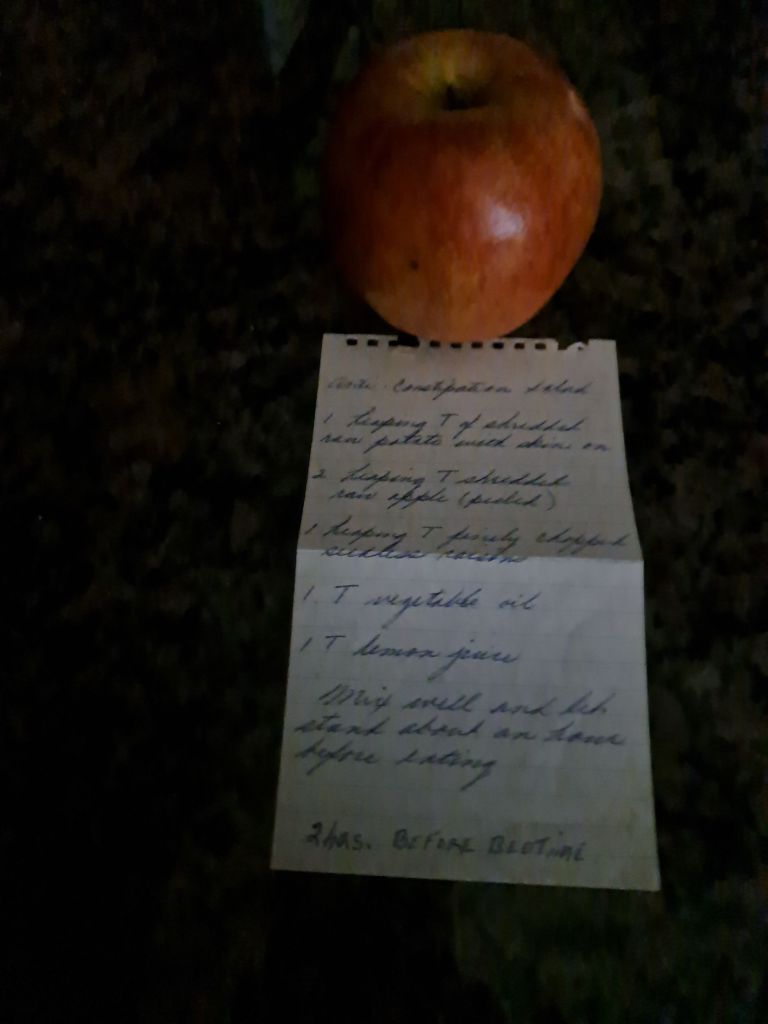 Anti-Constipation Salad
1 heaping T of shredded
raw potato with skin on
2 heaping T shredded
raw apple (peeled)
1 heaping T finely chopped
seedless raisins
1 T vegetable oil
1 T lemon juice
Mix well and let
stand about an hour
before eating
2 hrs. BEFORE BEDTIME